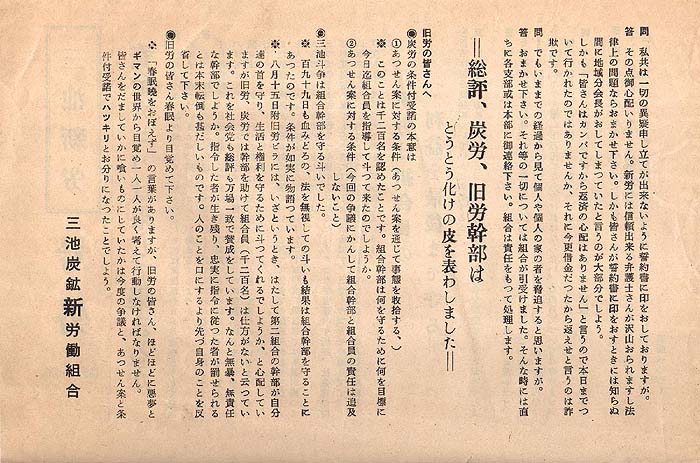 問　私共は一切の異疑申し立てが出来ないように誓約書に印をおしておりますが。
答　その点御心配いりません。新労には信頼出来る弁護士さんが沢山おられますし法
律上の問題ならおまかせ下さい。しかも皆さんが誓約書に印をおすときには知らぬ
間に地域分会長がおしてしまつていたと言うのが大部分でしよう。
しかも「皆さんはカンパですから返済の心配はありません」と言うので本日までつ
いて行かれたのではありませんか、それに今更借金だつたから返えせと言うのは詐
欺です。
問　でもいままでの経過から見て個人や個人の家の者を脅迫すると思いますが。
答　おまかせ下さい。それ等の一切については組合が引受けました。そんな時には直
ちに各支部或は本部に御連絡下さい。組合は責任をもつて処理します。
＝総評、炭労、旧労幹部は
とうとう化けの皮を表わしました＝
旧労の皆さんへ
◉炭労の条件付受諾の本意は
①あつせん案に対する条件（あつせん案を通じて事態を收拾する、）
※　このことは千二百名を認めたことです。組合幹部は何を守るために何を目標に
今日迄組合員を指導して斗つて来たのでしようか。
②あつせん案に対する条件（今回の争議にかんして組合幹部と組合員の責任は追及
しないこと）
◉三池斗争は組合幹部を守る斗いでした。
※　百九十九日も血みどろの、法を無視しての斗いも結果は組合幹部を守ることに
あつたのです。条件が如実に物語つています。
※　八月十五日附旧労ビラには、いざというとき、はたして第二組合の幹部が自分
達の首を守り、生活と権利を守るために斗つてくれるでしようか、と心配してい
ますが旧労、炭労では幹部を助けて組合員（千二百名）は仕方がないと云つてい
ます。これを社会党も総評も万場一致で賛成をしています。なんと無暴、無責任
な幹部でしようか。指令した者が生き残り、忠実に指令に従つた者が罰せられる
とは本末転倒も甚だしいものです。人のことを口にするより先づ自身のことを反
省して下さい。
◉旧労の皆さん春眠より目覚めて下さい。
※　「春眠暁をおぼえず」の言葉がありますが、旧労の皆さん、ほどほどに悪夢と
ギマンの世界から目覚め一人一人が良く考えて行動しなければなりません。
皆さんをだましていかに喰いものにしていたかは今度の争議と、あつせん案と条
件付受諾でハツキリとお分りになつたことでしよう。
三池炭鉱新労働組合